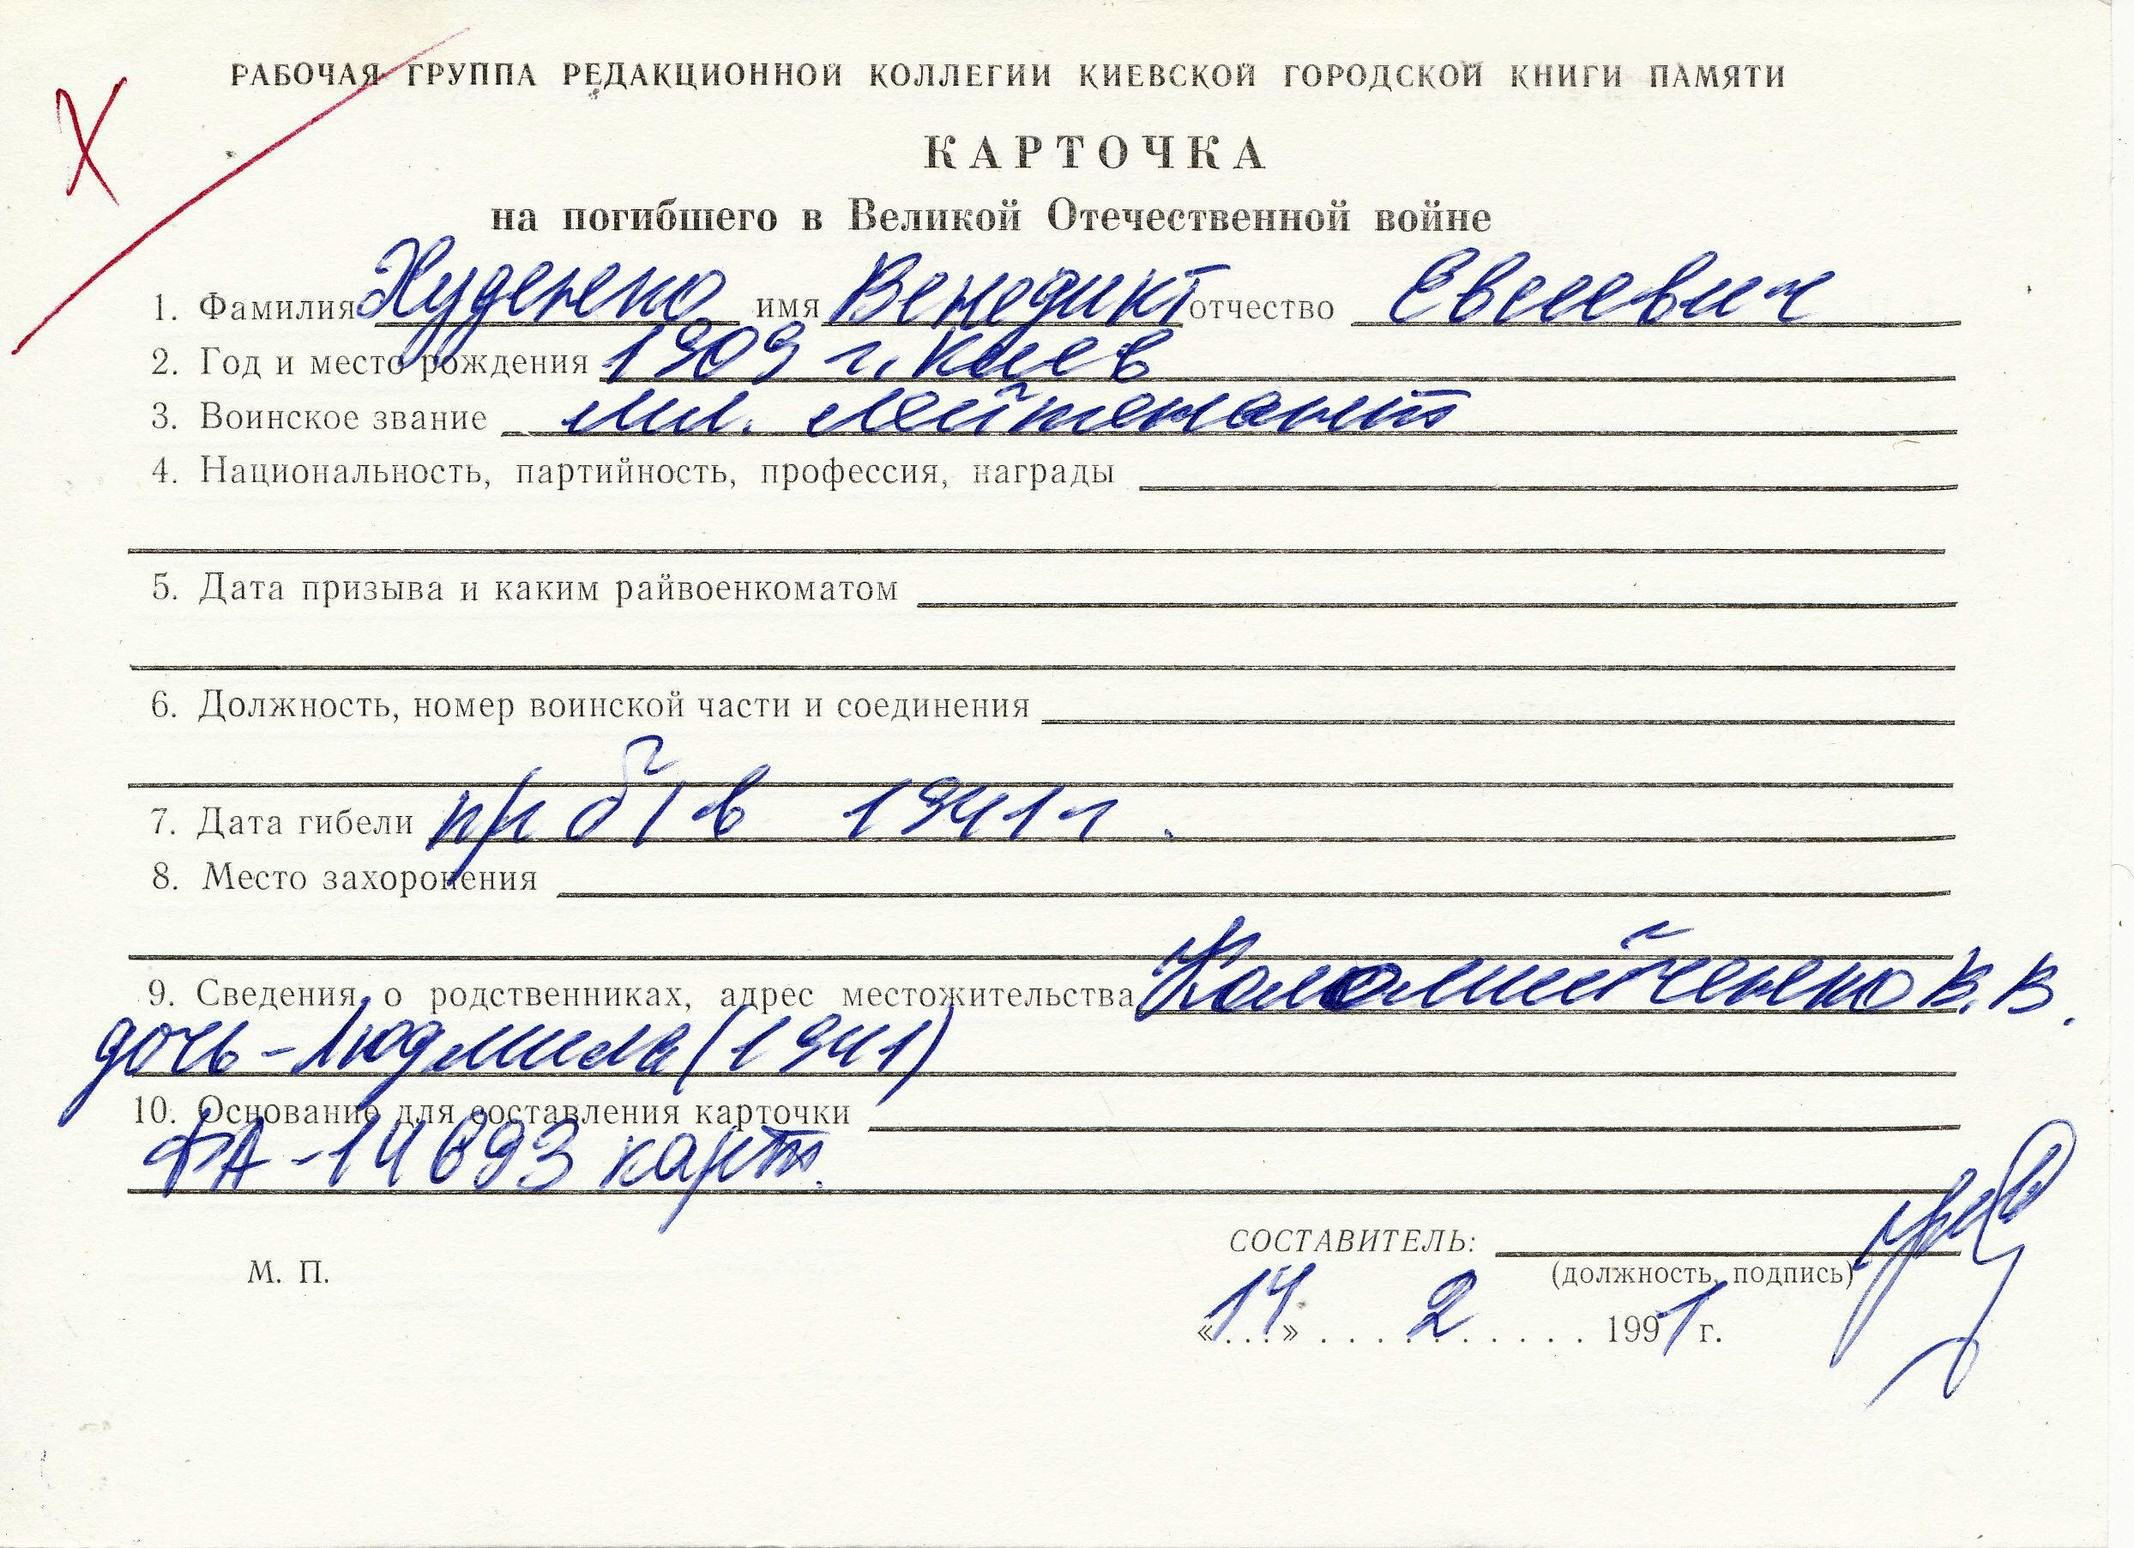 Х
РАБОЧАЯ ГРУППА РЕДАКЦИОННОЙ КОЛЛЕГИИ КИЕВСКОЙ ГОРОДСКОЙ КНИГИ ПАМЯТИ
КАРТОЧКА
на погибшего в Великой Отечественной войне
1. Фамилия Худенко имя Венедикт отчество Евсеевич
2. Год и место рождения 1909 г. Киев
3. Воинское звание мл. лейтенант
4. Национальность, партийность, профессия, награды
5. Дата призыва и каким райвоенкоматом
6. Должность, номер воинской части и соединения
7. Дата гибели пр б/в 1941 г.
8. Место захоронения
9. Сведения о родственниках, адрес местожительства Коломийченко В.В.
дочь - Людмила (1941)
10. Основание для составления карточки
ФА - 14693 карт.
СОСТАВИТЕЛЬ:
М. П.
(должность, подпись)
«14» 2 1991 г.